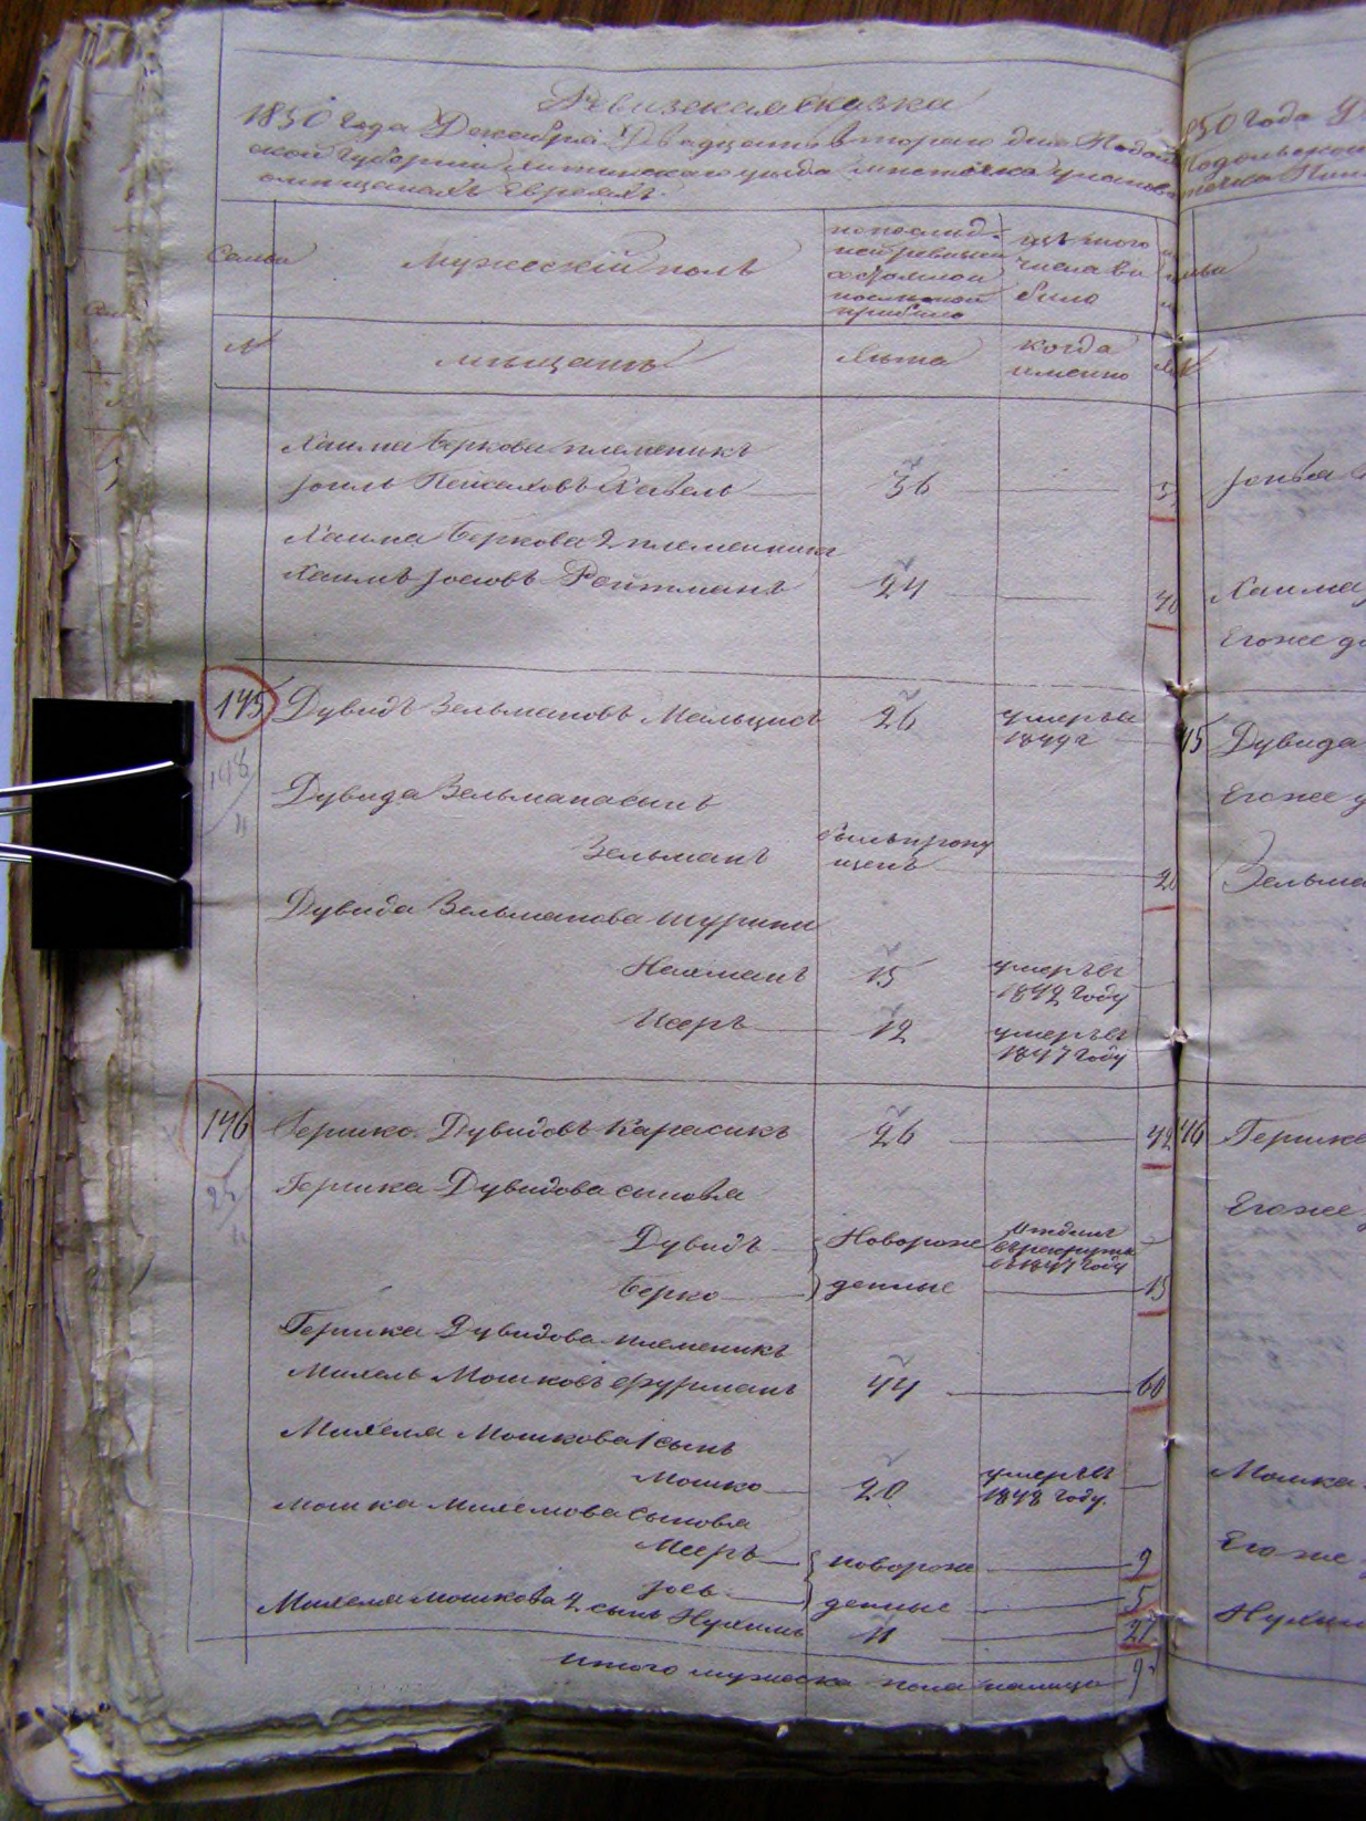 Ревизская сказка
1850 года Декабря Двадцать второго дня Подоль
ской Губернии Литинского уезда местечка Уланова
о мещанахъ Евреяхъ.
Семьи
Мужескій полъ
по послед-
ней ревизіи
состояло и
после оной
прибыло
изъ того
числа вы
было
№
мещанъ
Лета
когда
именно
Хаима Беркова племеникъ
Іоиль Пейсаховъ 36
Хаима Беркова 2 племенникъ
Хаимъ Іосіовъ Ройтманъ 24 40
145 Дувидъ Зельмановъ 26 умеръ въ
1849 г
148
11
Дувида Зельмана сынъ
Зельманъ былъ пропу
щенъ 20
Дувида Зельманова шурины
Нахманъ 15 умеръ въ
1842 году
Мееръ 12 умеръ въ
1847 году
146 Гершко Дувидовъ Карасикъ 26 42
Гершка Дувидова сыновья
Дувидъ Новорож Отданъ
въ рекруты
въ 1847 году
Берко денные 15
Гершка Дувидова племеникъ
Михель Мошковъ Фурманъ 44 60
Михеля Мошкова 1 сынъ
Мошко 20 умеръ въ
1848 году.
Мошка Михелова сыновья
Мееръ новорож 9
Іось денные 5
Михеля Мошкова 2 сынъ Нухимъ 11 27
Итого мужеска пола налицо
1850 года
Подольской
Хаима
Егоже
145 Дувида
Егоже
Зельма
146 Гершко
Егоже
Мошка
Егоже
Нухим